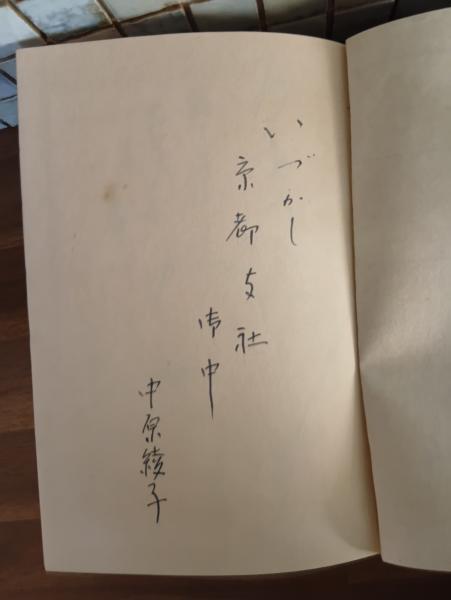 いづかし
京都支社
御中
中原綾子